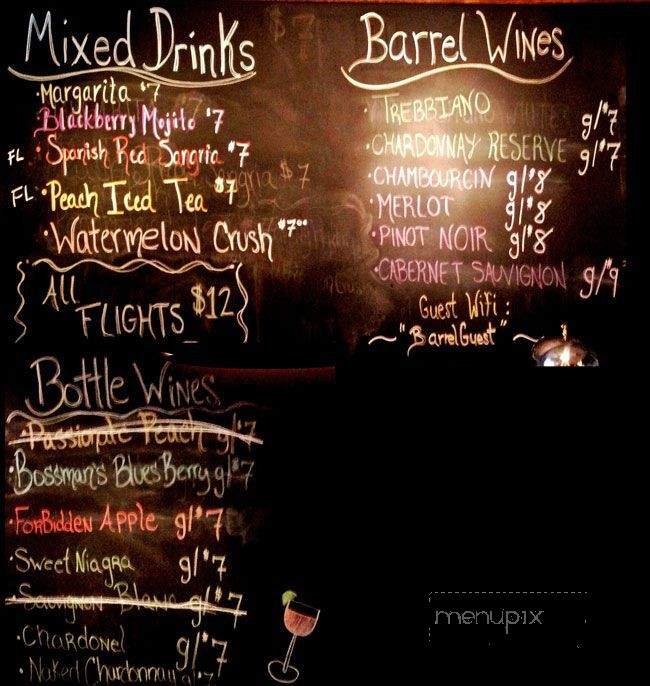 Mixed Drinks
·Margarita $7
Blackberry Mojito $7
FL ·Spanish Red Sangria $7
FL ·Peach Iced Tea $7
·Watermelon Crush $7⁰⁰
All
FLIGHTS $12
Barrel Wines
·TREBBIANO g/$7
·CHARDONNAY RESERVE g/$7
·CHAMBOURCIN g/$8
·MERLOT g/$8
·PINOT NOIR g/$8
·CABERNET SAUVIGNON g/$9
Guest Wifi :
~"BarrelGuest"~
Bottle Wines
·Passionate Peach g/$7
·Bossman's Blues Berry g/$7
·Forbidden Apple g/$7
·Sweet Niagra g/$7
·Sauvignon Blanc g/$7
·Chardonel g/$7
·Naked Chardonnay g/$7
menupix